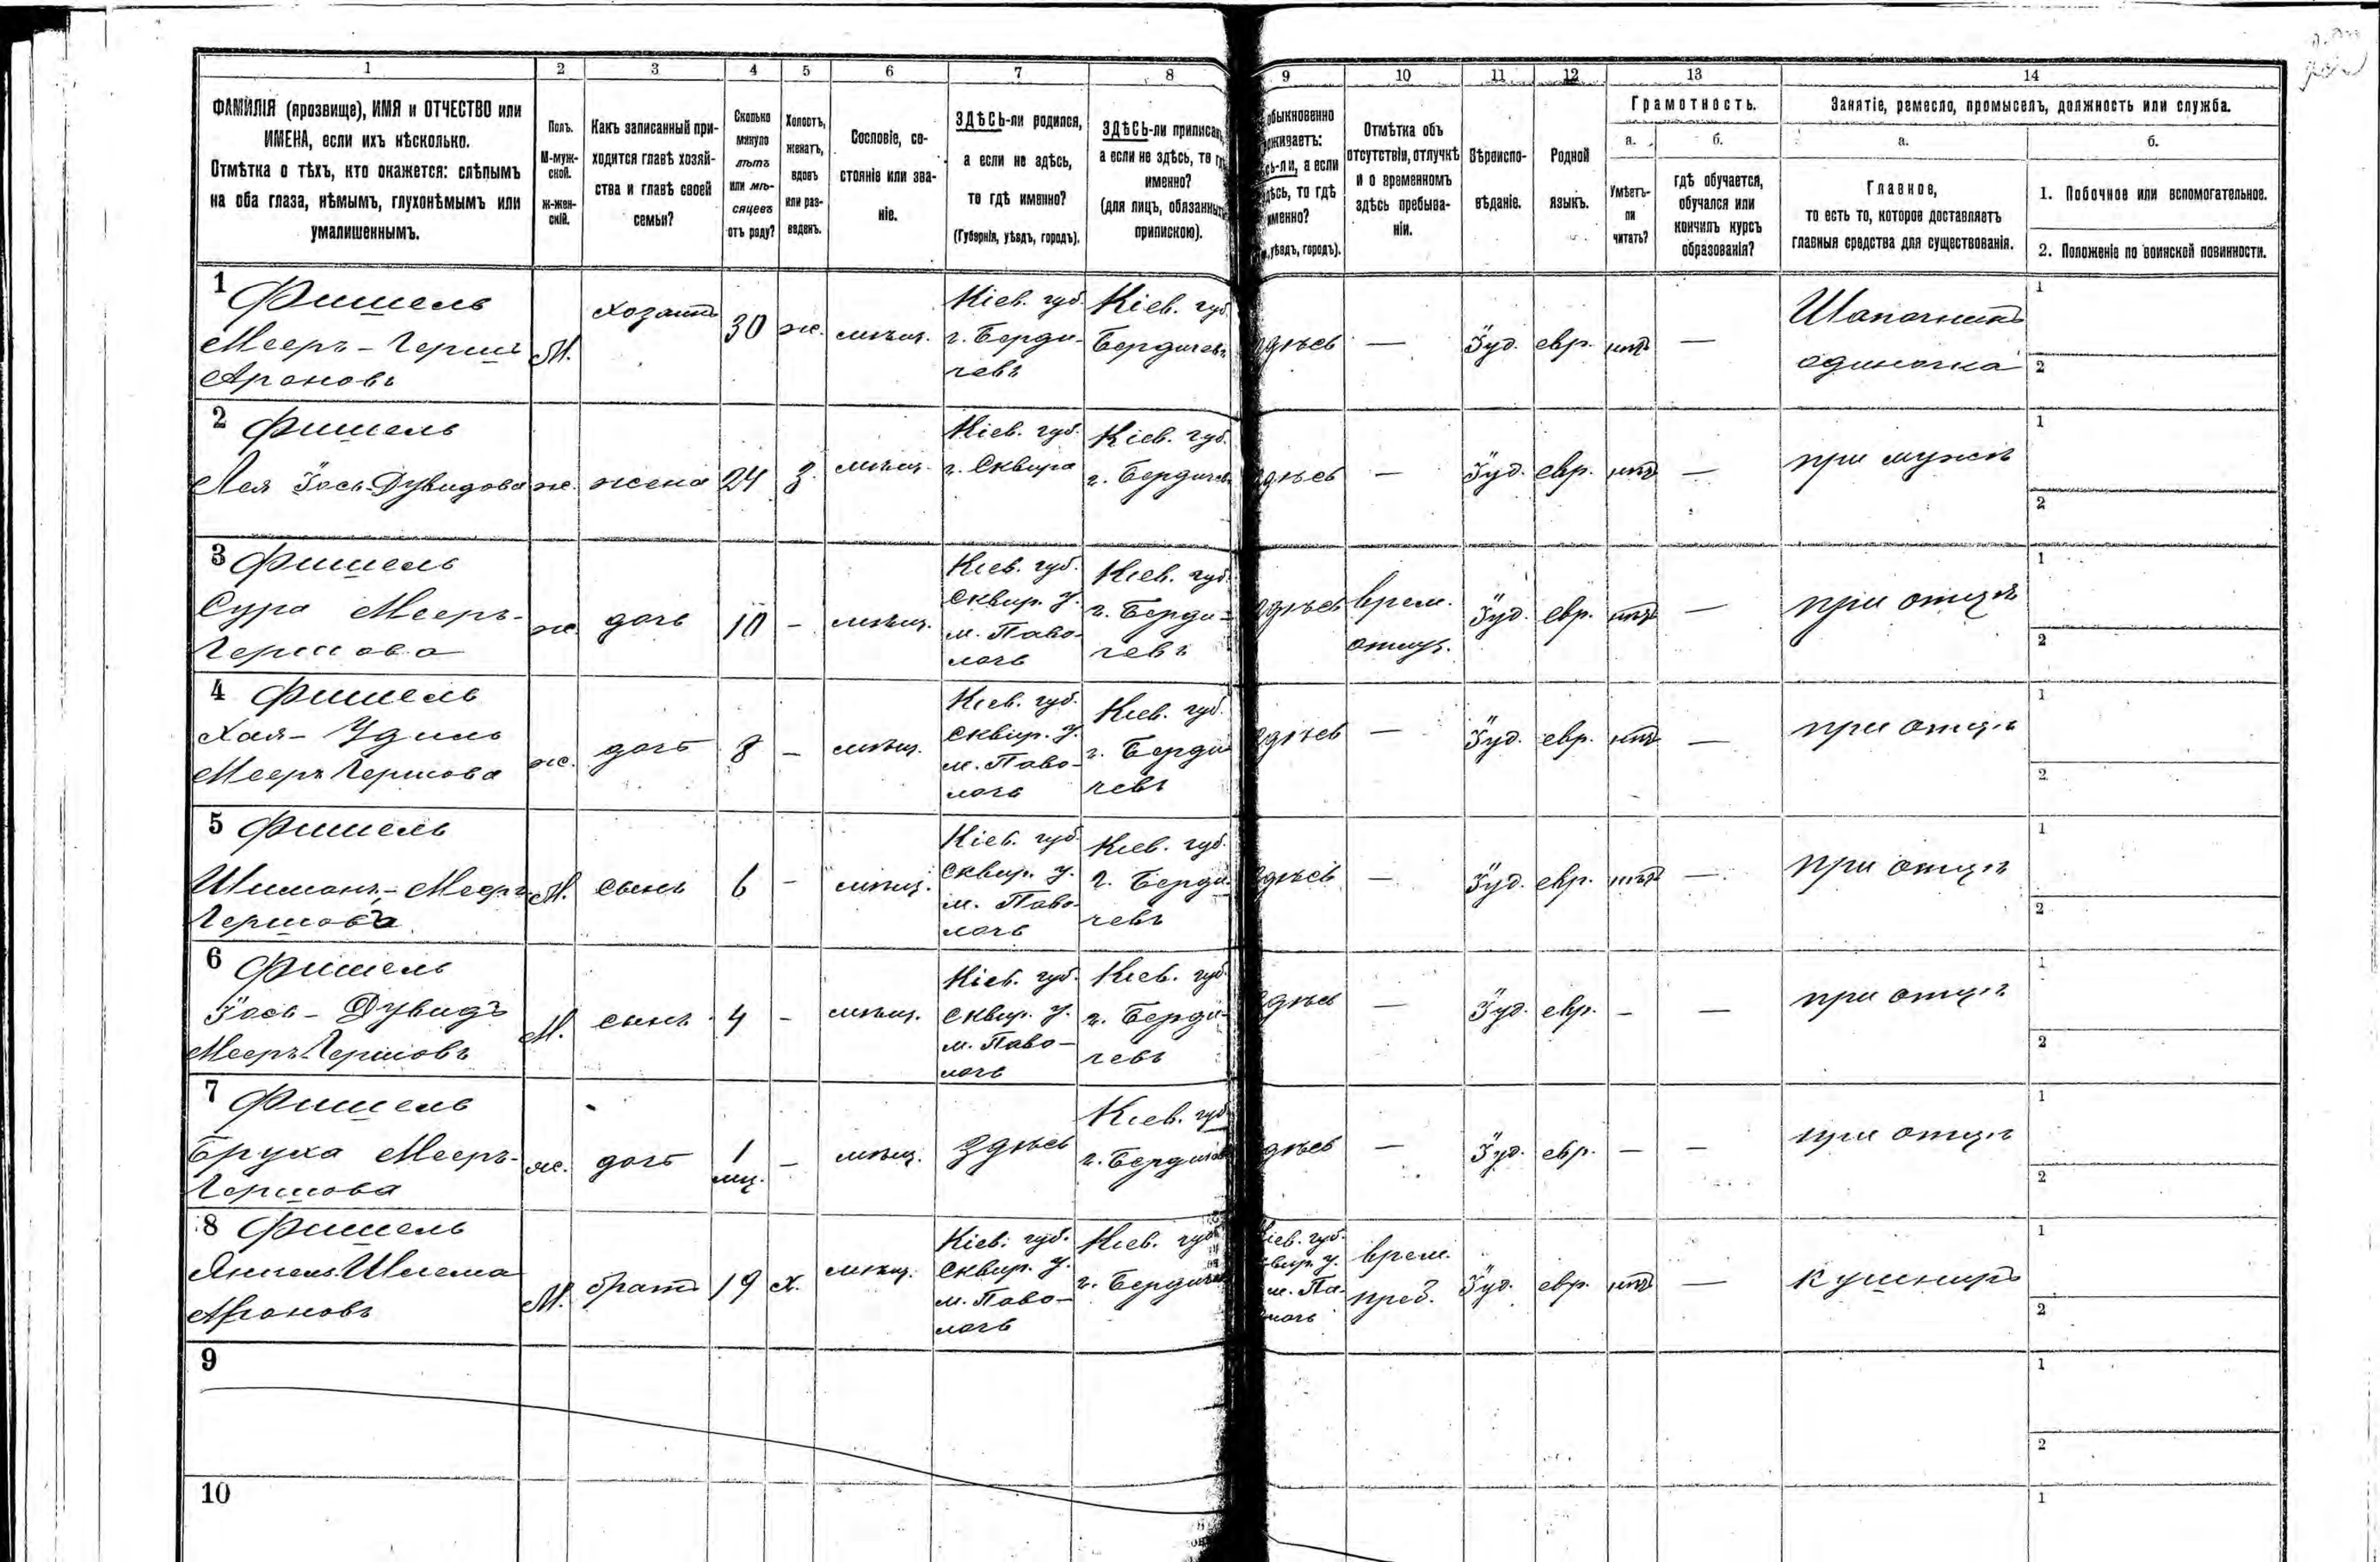 1 2 3 4 5 6 7 8 9 10 11 12 13 14
ФАМИЛІЯ (прозвище), ИМЯ и ОТЧЕСТВО или
ИМЕНА, если ихъ нѣсколько.
Отмѣтка о тѣхъ, кто окажется: слѣпымъ
на оба глаза, нѣмымъ, глухонѣмымъ или
умалишеннымъ.
Полъ.
М-муж-
ской.
Ж-жен-
скій.
Какъ записанный при-
ходится главѣ хозяй-
ства и главѣ своей
семьи?
Сколько
минуло
лѣтъ
или мѣ-
сяцевъ
отъ роду?
Холостъ,
женатъ,
вдовъ
или раз-
веденъ.
Сословіе, со-
стояніе или зва-
ніе.
ЗДѢСЬ-ли родился,
а если не здѣсь,
то гдѣ именно?
(Губернія, уѣздъ, городъ).
ЗДѢСЬ-ли приписанъ,
а если не здѣсь, то гдѣ
именно?
(для лицъ, обязанныхъ
припискою).
обыкновенно
живаетъ:
сь-ли, а если
дѣсь, то гдѣ
именно?
уѣздъ, городъ).
Отмѣтка объ
отсутствіи, отлучкѣ
и о временномъ
здѣсь пребыва-
ніи.
Вѣроиспо-
вѣданіе.
Родной
языкъ.
Грамотность.
а.
Умѣетъ-
ли
читать?
б.
гдѣ обучается,
обучался или
кончилъ курсъ
образованія?
Занятіе, ремесло, промыселъ, должность или служба.
а.
Главное,
то есть то, которое доставляетъ
главныя средства для существованія.
б.
1. Побочное или вспомогательное.
2. Положеніе по воинской повинности.
1 Фишель
Мееръ-Гершъ
Ароновъ
М.
хозяинъ
30
ж.
мѣщ.
Кіев. губ.
г. Берди-
чевъ
Кіев. губ.
Бердичевъ
здѣсь
—
Іуд.
евр.
нѣтъ
—
Шапочникъ
одиночка
1
2
2 Фишель
Лея Іось-Дувидова
ж.
жена
24
З.
мѣщ.
Кіев. губ.
г. Сквира
Кіев. губ.
г. Бердичевъ
здѣсь
—
Іуд.
евр.
нѣтъ
—
при мужѣ
1
2
3 Фишель
Сура Мееръ-
Гершова
ж.
дочь
10
-
мѣщ.
Кіев. губ.
Сквир. у.
м. Паво-
лочь
Кіев. губ.
г. Берди-
чевъ
здѣсь
врем.
отлуч.
Іуд.
евр.
нѣтъ
—
при отцѣ
1
2
4 Фишель
Хая-Удиль
Мееръ Гершова
ж.
дочь
8
-
мѣщ.
Кіев. губ.
Сквир. у.
м. Паво-
лочь
Кіев. губ.
г. Берди-
чевъ
здѣсь
—
Іуд.
евр.
нѣтъ
—
при отцѣ
1
2
5 Фишель
Шимонъ-Мееръ-
Гершовъ
М.
сынъ
6
-
мѣщ.
Кіев. губ.
Сквир. у.
м. Паво-
лочь
Кіев. губ.
г. Берди-
чевъ
здѣсь
—
Іуд.
евр.
нѣтъ
—
при отцѣ
1
2
6 Фишель
Іось-Дувидъ
Мееръ Гершовъ
М.
сынъ
4
-
мѣщ.
Кіев. губ.
Сквир. у.
м. Паво-
лочь
Кіев. губ.
г. Берди-
чевъ
здѣсь
—
Іуд.
евр.
-
—
при отцѣ
1
2
7 Фишель
Бруха Мееръ-
Гершова
ж.
дочь
1
мц.
-
мѣщ.
здѣсь
Кіев. губ.
г. Бердичевъ
здѣсь
—
Іуд.
евр.
-
—
при отцѣ
1
2
8 Фишель
Шлема
Ароновъ
М.
братъ
19
х.
мѣщ.
Кіев. губ.
Сквир. у.
м. Паво-
лочь
Кіев. губ.
г. Бердичевъ
Кіев. губ.
Сквир. у.
м. Па-
лочь
врем.
преб.
Іуд.
евр.
нѣтъ
—
кушниръ
1
2
9
1
2
10
1